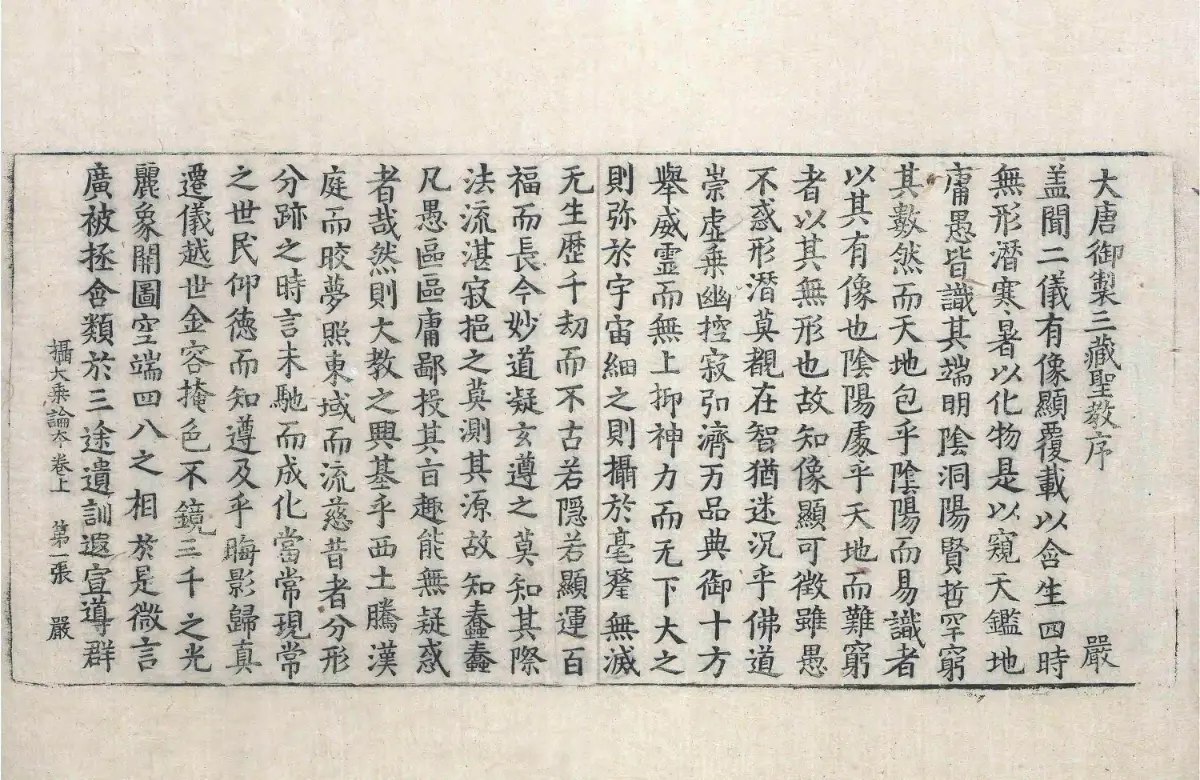 大唐御製三藏聖教序 嚴
盖聞二儀有像顯覆載以含生四時
無形潛寒暑以化物是以窺天鑑地
庸愚皆識其端明陰洞陽賢哲罕窮
其數然而天地包乎陰陽而易識者
以其有像也陰陽處乎天地而難窮
者以其無形也故知像顯可徵雖愚
不惑形潛莫覩在智猶迷況乎佛道
崇虛乗幽控寂弘濟万品典御十方
舉威靈而無上抑神力而无下大之
則弥於宇宙細之則攝於毫氂無滅
无生歷千劫而不古若隠若顯運百
福而長今妙道凝玄遵之莫知其際
法流湛寂挹之莫測其源故知蠢蠢
凡愚區區庸鄙投其旨趣能無疑惑
者哉然則大教之興基乎西土騰漢
庭而皎夢照東域而流慈昔者分形
分跡之時言未馳而成化當常現常
之世民仰德而知遵及乎晦影歸真
遷儀越世金容掩色不鏡三千之光
麗象開圖空端四八之相於是微言
廣被拯含類於三途遺訓遐宣導群
攝大乗論本卷上 第一張 嚴